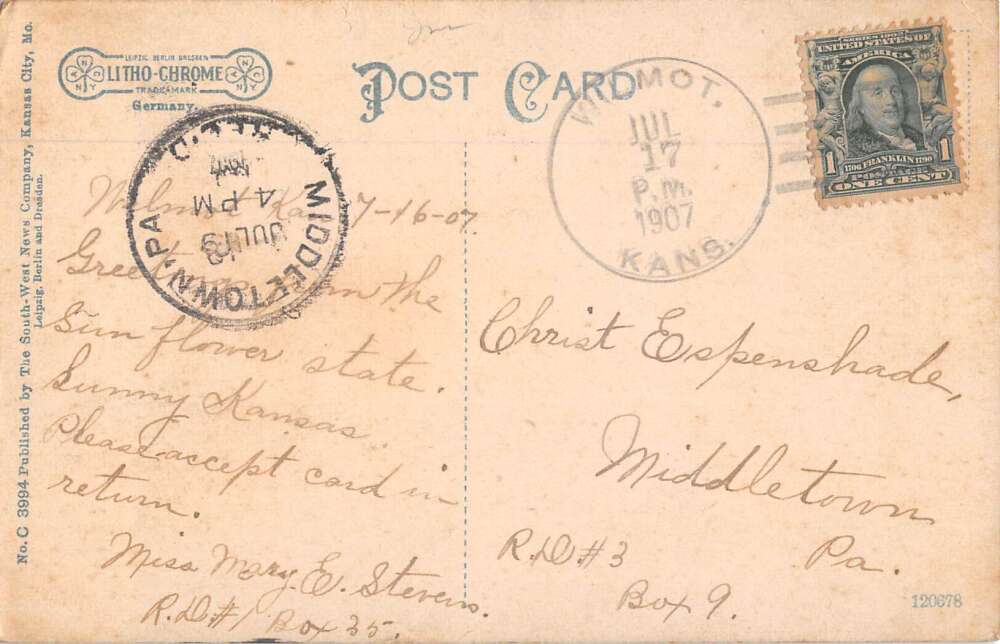 LEIPZIG BERLIN DRESDEN
LITHO-CHROME
TRADEMARK
Germany.
POST CARD
WILMOT.
JUL
17
P.M.
1907
KANS.
SERIES 1902
UNITED STATES OF
AMERICA
1706 FRANKLIN 1790
POSTAGE
1 ONE CENT 1
MIDDLETOWN, PA
REC'D
JUL 19
4 PM
1907
Wilmot Kan 7-16-07.
Greetings from the
Sun flower state.
Sunny Kansas.
Please accept card in
return.
Miss Mary E. Stevens.
R.D.#1 Box 35.
Christ Espenshade,
Middletown
R.D.#3 Pa.
Box 9.
120678
No. C 3994 Published by The South-West News Company, Kansas City, Mo.
Leipzig, Berlin and Dresden.